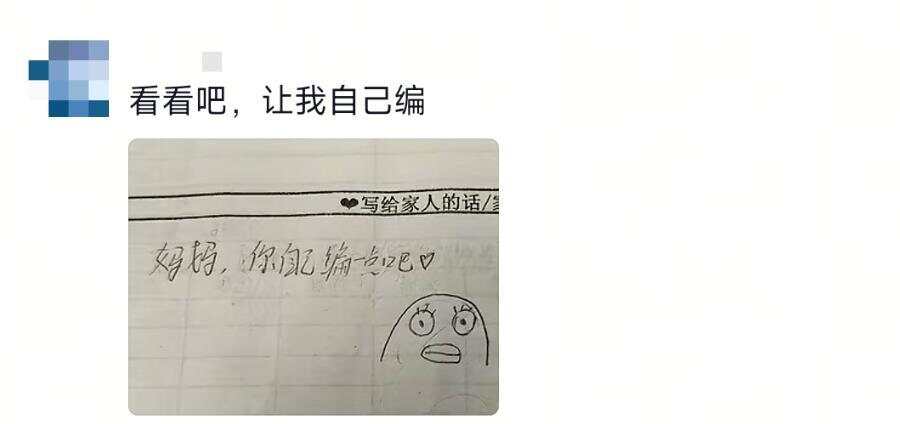 看看吧，让我自己编
❤写给家人的话/家
妈妈，你自己编一点吧♡